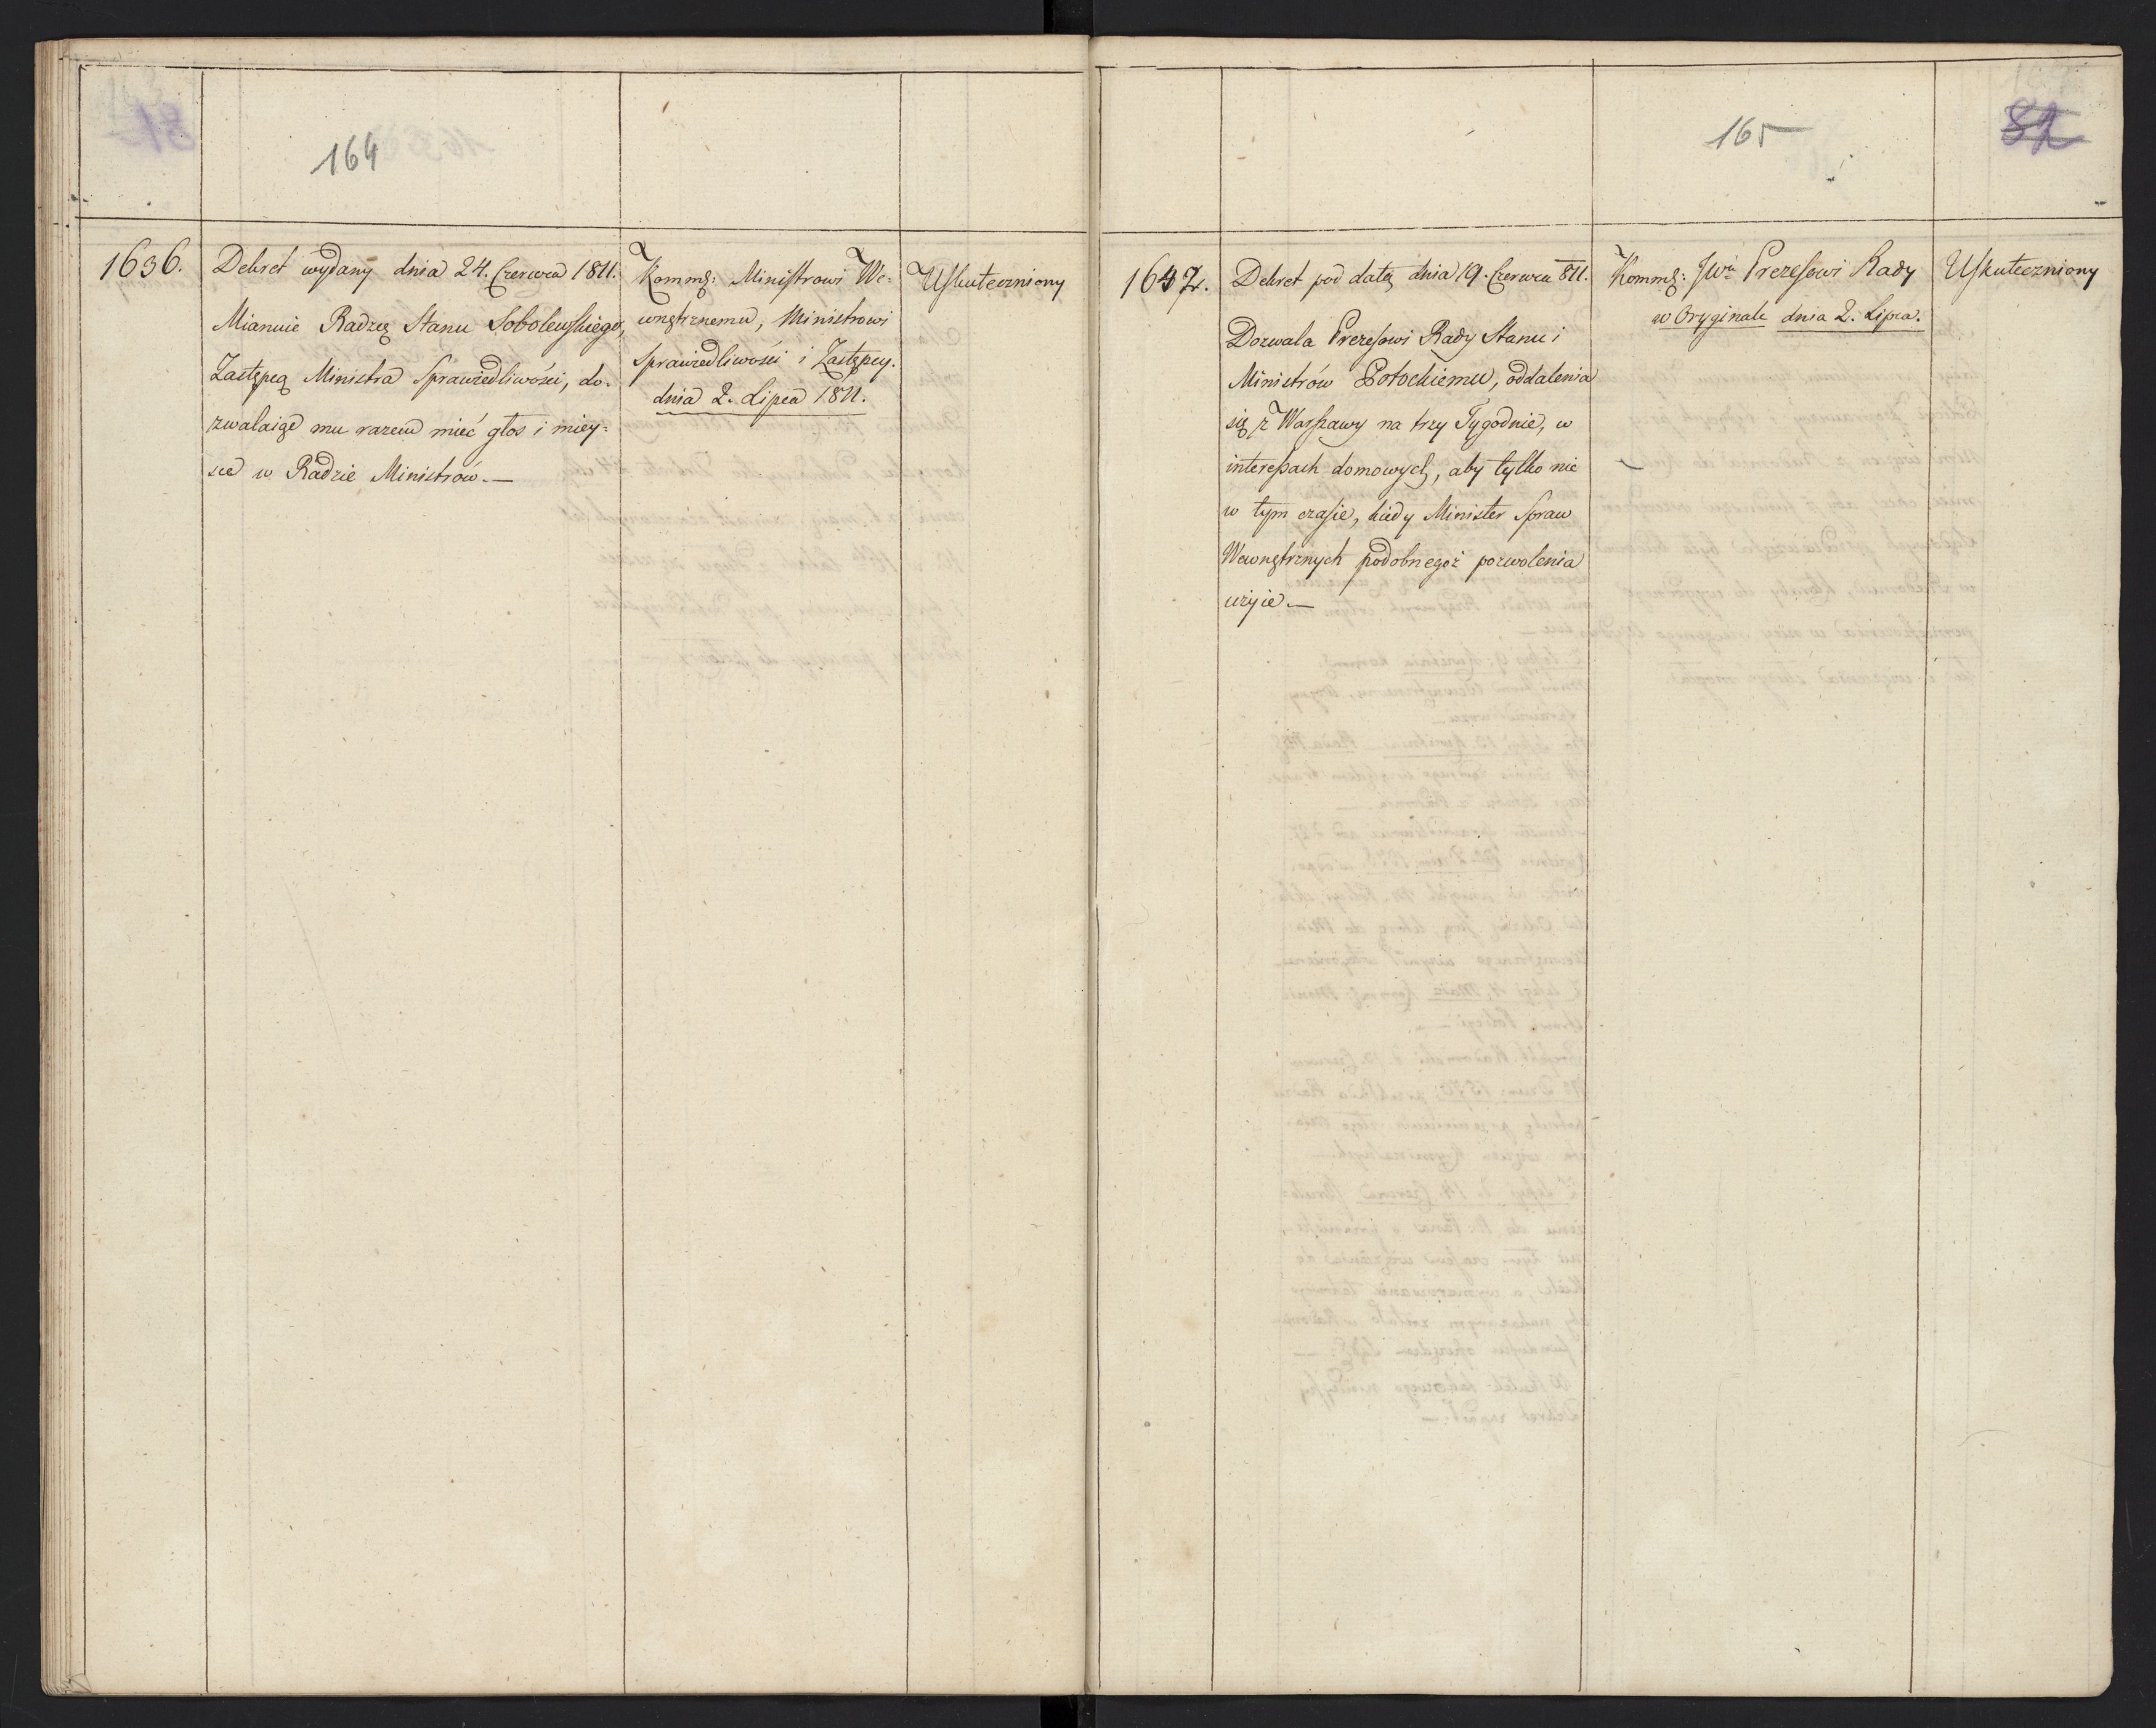 164
1636.
Dekret wydany dnia 24. Czerwca 1811.
Mianuie Radzcę Stanu Sobolewskiego,
Zastępcą Ministra Sprawiedliwości, do-
zwalaiąc mu razem mieć głos i miey-
sce w Radzie Ministrów. —
Kommȩ: Ministrowi We-
wnętrznemu, Ministrowi
Sprawiedliwości i Zastępcy.
dnia 2. Lipca 1811.
Uskuteczniony
165
82
1637.
Dekret pod datą dnia 19. Czerwca 811.
Dozwala Prezesowi Rady Stanu i
Ministrów Potockiemu, oddalenia
się z Warszawy na trzy Tygodnie, w
interessach domowych, aby tylko nie
w tym czasie, kiedy Minister Spraw
Wewnętrznych podobnegoż pozwolenia
użyie. —
Kommȩ: JWu Prezesowi Rady
w Oryginale dnia 2. Lipca.
Uskuteczniony